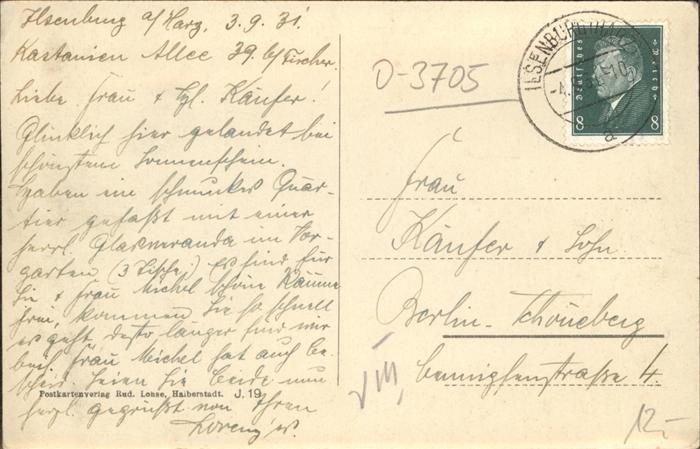 Ilsenburg a/Harz, 3.9.31.
Kastanien Allee 39. b/Fischer.
Liebe Frau & Hl. Käufer!
Glücklich hier gelandet bei
schönstem Sonnenschein.
Haben ein schmuckes Quar-
tier gefaßt mit einer
herrl. Glasveranda im Vor-
garten (3 Tische.) Es sind für
Sie & Frau Michel schöne Räume
frei, kommen Sie so schnell
es geht, desto länger sind wir
beis. Frau Michel hat auch Be-
scheid. Seien Sie beide nun
herzl. gegrüßt von Ihren
Lorenz'es.
Postkartenverlag Rud. Lohse, Halberstadt. J. 19
O-3705
ILSENBURG (HARZ)
a
Deutsches Reich
8 8
Frau
Käufer & Sohn
Berlin-Schöneberg
Bennigsenstraße 4.
VIII
12,-